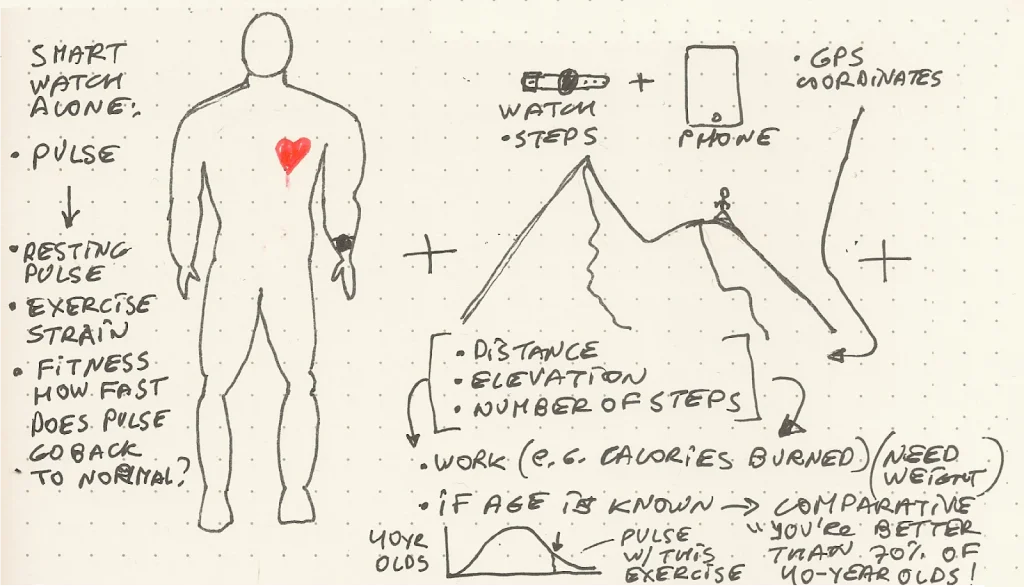 SMART
WATCH
ALONE:
• PULSE
• RESTING
PULSE
• EXERCISE
STRAIN
• FITNESS
HOW FAST
DOES PULSE
GO BACK
TO NORMAL?
WATCH
• STEPS
+
PHONE
• GPS
COORDINATES
+
+
• DISTANCE
• ELEVATION
• NUMBER OF STEPS
• WORK (e.G. CALORIES BURNED) (NEED
WEIGHT)
• iF AGE iS KNOWN → COMPARATIVE
"YOU'Re BETTER
THAN 70% OF
40-YEAR OLDS!
40YR
OLDS
PULSE
W/ THIS
EXERCISE